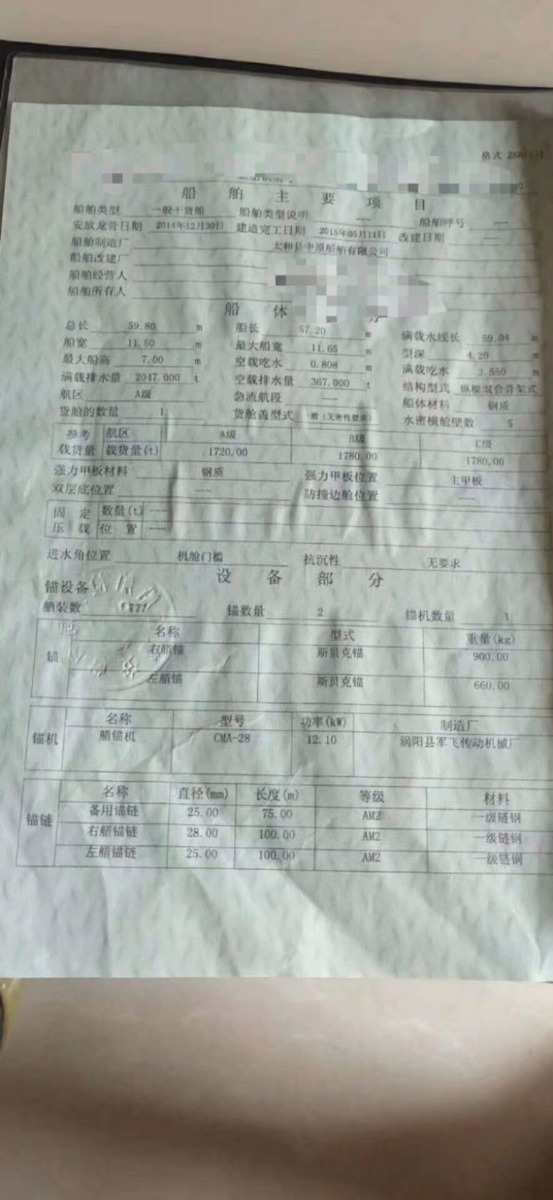 格式
船舶主要项目
船舶类型 一般干货船 船舶类型说明 —— 船舶呼号 ——
安放龙骨日期 2014年12月30日 建造完工日期 2015年05月13日 改建日期 ——
船舶制造厂 太和县中原船舶有限公司
船舶改建厂
船舶经营人
船舶所有人
船体
总长 59.80 m 船长 57.20 m 满载水线长 59.04 m
船宽 11.50 m 最大船宽 11.65 m 型深 4.20 m
最大船高 7.00 m 空载吃水 0.808 m 满载吃水 3.550 m
满载排水量 2047.000 t 空载排水量 367.000 t 结构型式 纵横混合骨架式
航区 A级 急流航段 船体材料 钢质
货舱的数量 1 货舱盖型式 般(无密性要求) 水密横舱壁数 5
参考 航区 A级 B级 C级
载货量 载货量(t) 1720.00 1780.00 1780.00
强力甲板材料 钢质 强力甲板位置 主甲板
双层底位置 —— 防撞边舱位置 ——
固定 数量(t) ——
压载 位置 ——
进水角位置 机舱门槛 抗沉性 无要求
设备部分
锚设备
舾装数 锚数量 2 锚机数量 1
名称 型式 重量(kg)
锚 右艏锚 斯贝克锚 900.00
左艏锚 斯贝克锚 660.00
名称 型号 功率(kW) 制造厂
锚机 艏锚机 CMA-28 12.10 涡阳县军飞传动机械厂
名称 直径(mm) 长度(m) 等级 材料
备用锚链 25.00 75.00 AM2 一级链钢
锚链 右艏锚链 28.00 100.00 AM2 一级链钢
左艏锚链 25.00 100.00 AM2 一级链钢